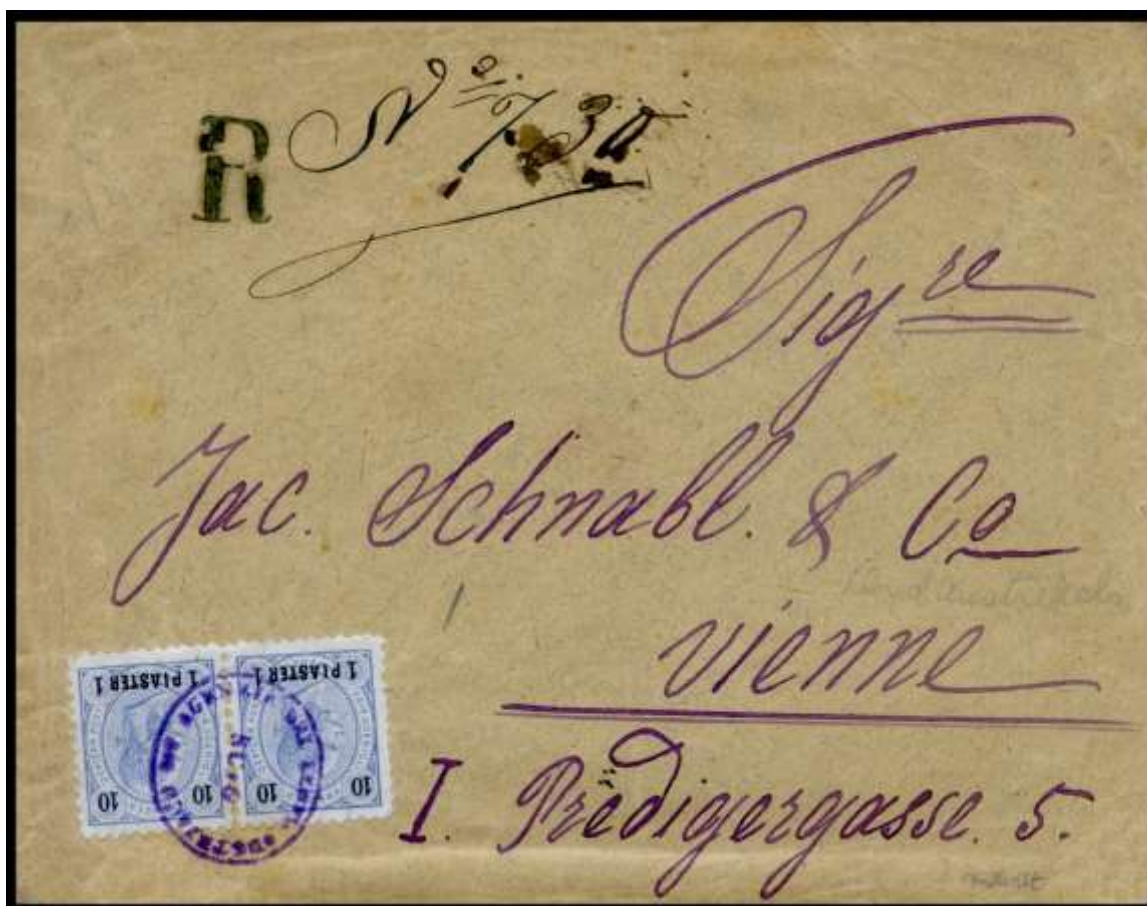 R Nº 730
Sigre
Jac. Schnabl. & Co
Vienne
I. Predigergasse. 5.
1 PIASTER 1 1 PIASTER 1
10 10 10 10